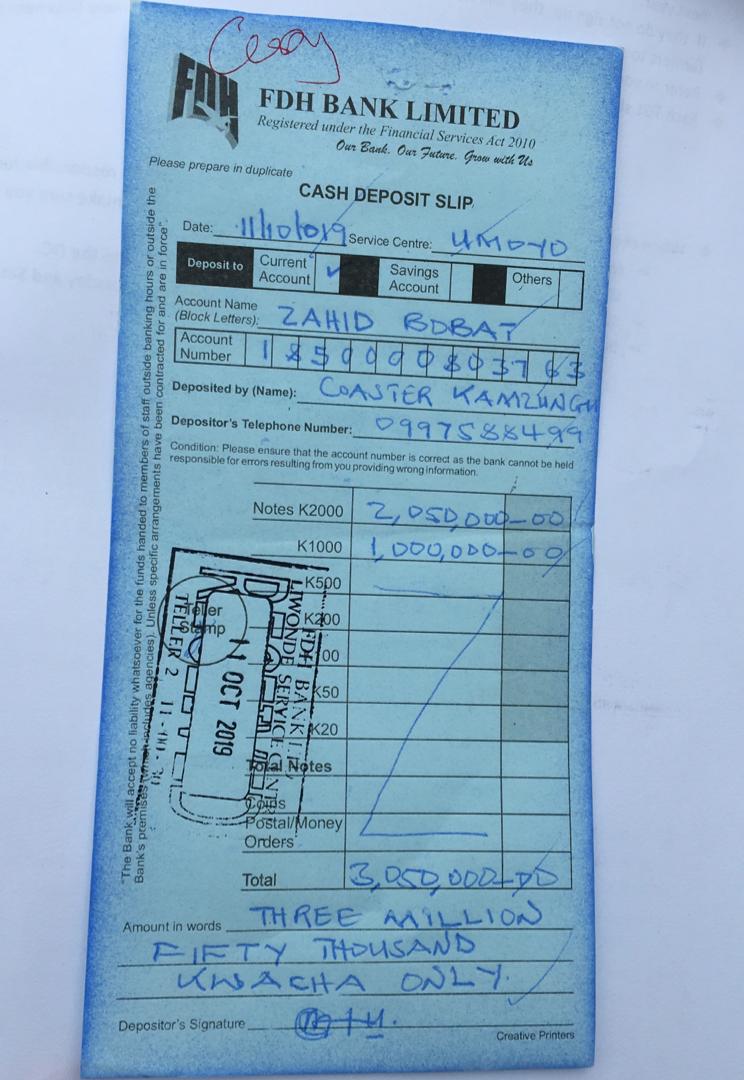 FDH
FDH BANK LIMITED
Registered under the Financial Services Act 2010
Our Bank. Our Future. Grow with Us
Please prepare in duplicate
CASH DEPOSIT SLIP
Date: 11/10/019 Service Centre: UMOYO
Deposit to Current Account ✓ Savings Account Others
Account Name
(Block Letters): ZAHID BOBAT
Account Number
Deposited by (Name): COASTER KAMZUNGU
Depositor's Telephone Number: 0997588499
Condition: Please ensure that the account number is correct as the bank cannot be held
responsible for errors resulting from you providing wrong information.
Notes K2000 2,050,000-00
K1000 1,000,000-00
K500
K200
K50
K20
Total Notes
Coins
Postal/Money
Orders
Total 3,050,000-00
Amount in words THREE MILLION
FIFTY THOUSAND
KWACHA ONLY.
Depositor's Signature
Creative Printers
"The Bank will accept no liability whatsoever for the funds handed to members of staff outside banking hours or outside the
Bank's premises (which includes agencies). Unless specific arrangements have been contracted for and are in force".
Teller
Stamp
FDH BANK LTD
LIWONDE SERVICE CENTRE
11 OCT 2019
TELLER 2